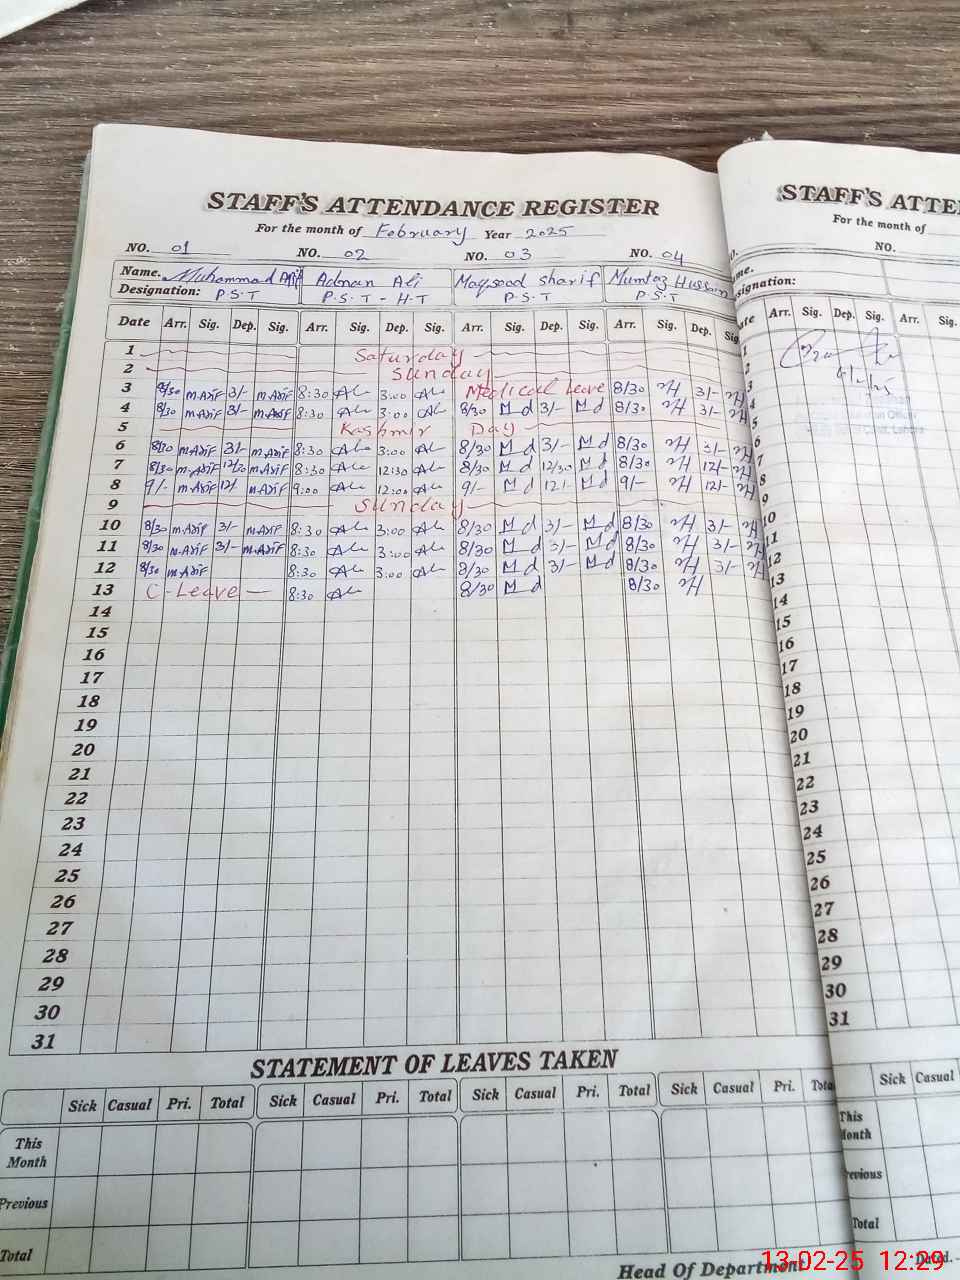 STAFF'S ATTENDANCE REGISTER
For the month of February Year 2025
NO. 01 NO. 02 NO. 03 NO. 04
Name. Muhammad Arif Adnan Ali Maqsood sharif Mumtaz Hussain
Designation: P.S.T P.S.T - H.T P.S.T P.S.T
Date Arr. Sig. Dep. Sig. Arr. Sig. Dep. Sig. Arr. Sig. Dep. Sig. Arr. Sig. Dep. Sig
1 Saturday
2 Sunday
3 8/30 m.Arif 3/- m.Arif 8:30 3:00 Medical Leave 8/30 3/-
4 8/30 m.Arif 3/- m.Arif 8:30 3:00 8/30 M d 3/- M d 8/30 3/-
5 Kashmir Day
6 8/30 m.Arif 3/- m.Arif 8:30 3:00 8/30 M d 3/- M d 8/30 3/-
7 8/30 m.Arif 12/30 m.Arif 8:30 12:30 8/30 M d 12/30 M d 8/30 12/-
8 9/- m.Arif 12/ m.Arif 9:00 12:00 9/- M d 12/- M d 9/- 12/-
9 Sunday
10 8/30 m.Arif 3/- m.Arif 8:30 3:00 8/30 M d 3/- M d 8/30 3/-
11 8/30 m.Arif 3/- m.Arif 8:30 3:00 8/30 M d 3/- M d 8/30 3/-
12 8/30 m.Arif 8:30 3:00 8/30 M d 3/- M d 8/30 3/-
13 C-Leave 8:30 8/30 M d 8/30
14
15
16
17
18
19
20
21
22
23
24
25
26
27
28
29
30
31
STATEMENT OF LEAVES TAKEN
Sick Casual Pri. Total Sick Casual Pri. Total Sick Casual Pri. Total Sick Casual Pri. Tota
This
Month
Previous
Total
Head Of Department
STAFF'S ATTE
For the month of
NO.
me.
signation:
ate Arr. Sig. Dep. Sig. Arr. Sig.
1
2
3
4
5
6
7
8
9
10
11
12
13
14
15
16
17
18
19
20
21
22
23
24
25
26
27
28
29
30
31
Sick Casual
This
Month
revious
Total
Dated.
13-02-25 12:29